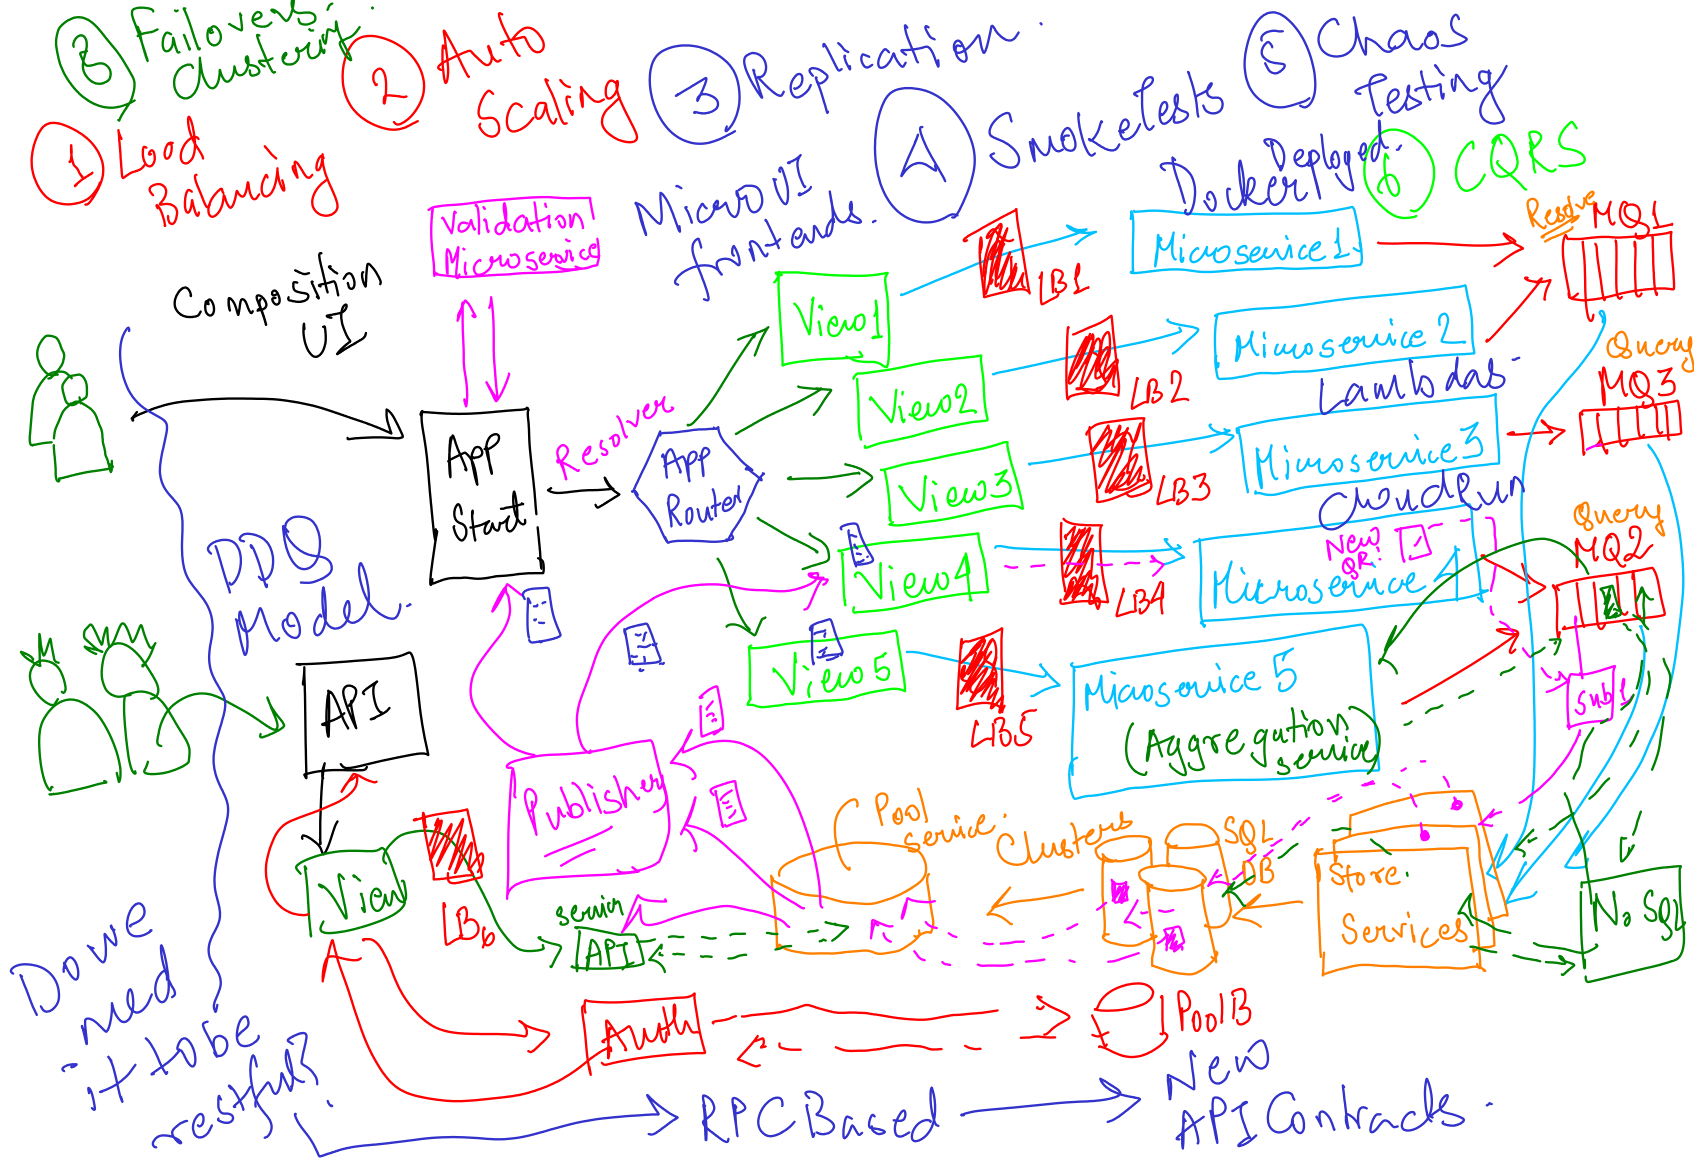 3 Failovers.
Clustering
2 Auto
Scaling
3 Replication.
4 SmokeTests
5 Chaos
Testing
1 Load
Balancing
6 CQRS
Docker Deployed.
Micro UI
frontends.
Validation
Microservice
Composition
UI
Resolve
MQ1
LB1
Microservice 1.
View1
LB2
Microservice 2
View2
Lambdas
Query
MQ3
App
Start
Resolver
App
Router
LB3
Microservice 3
View3
CloudRun
Query
MQ2
New
QR:
LB4
Microservice 4
View4
DDD
Model.
API
View5
LB5
Microservice 5
(Aggregation
service)
Sub1
Publisher
Pool
service.
Clusters
SQL
DB
Store.
Services
No SQL
View
LB6
service
API
Auth
Pool B
Do we
need
it to be
restful?
RPC Based
New
API Contracts.